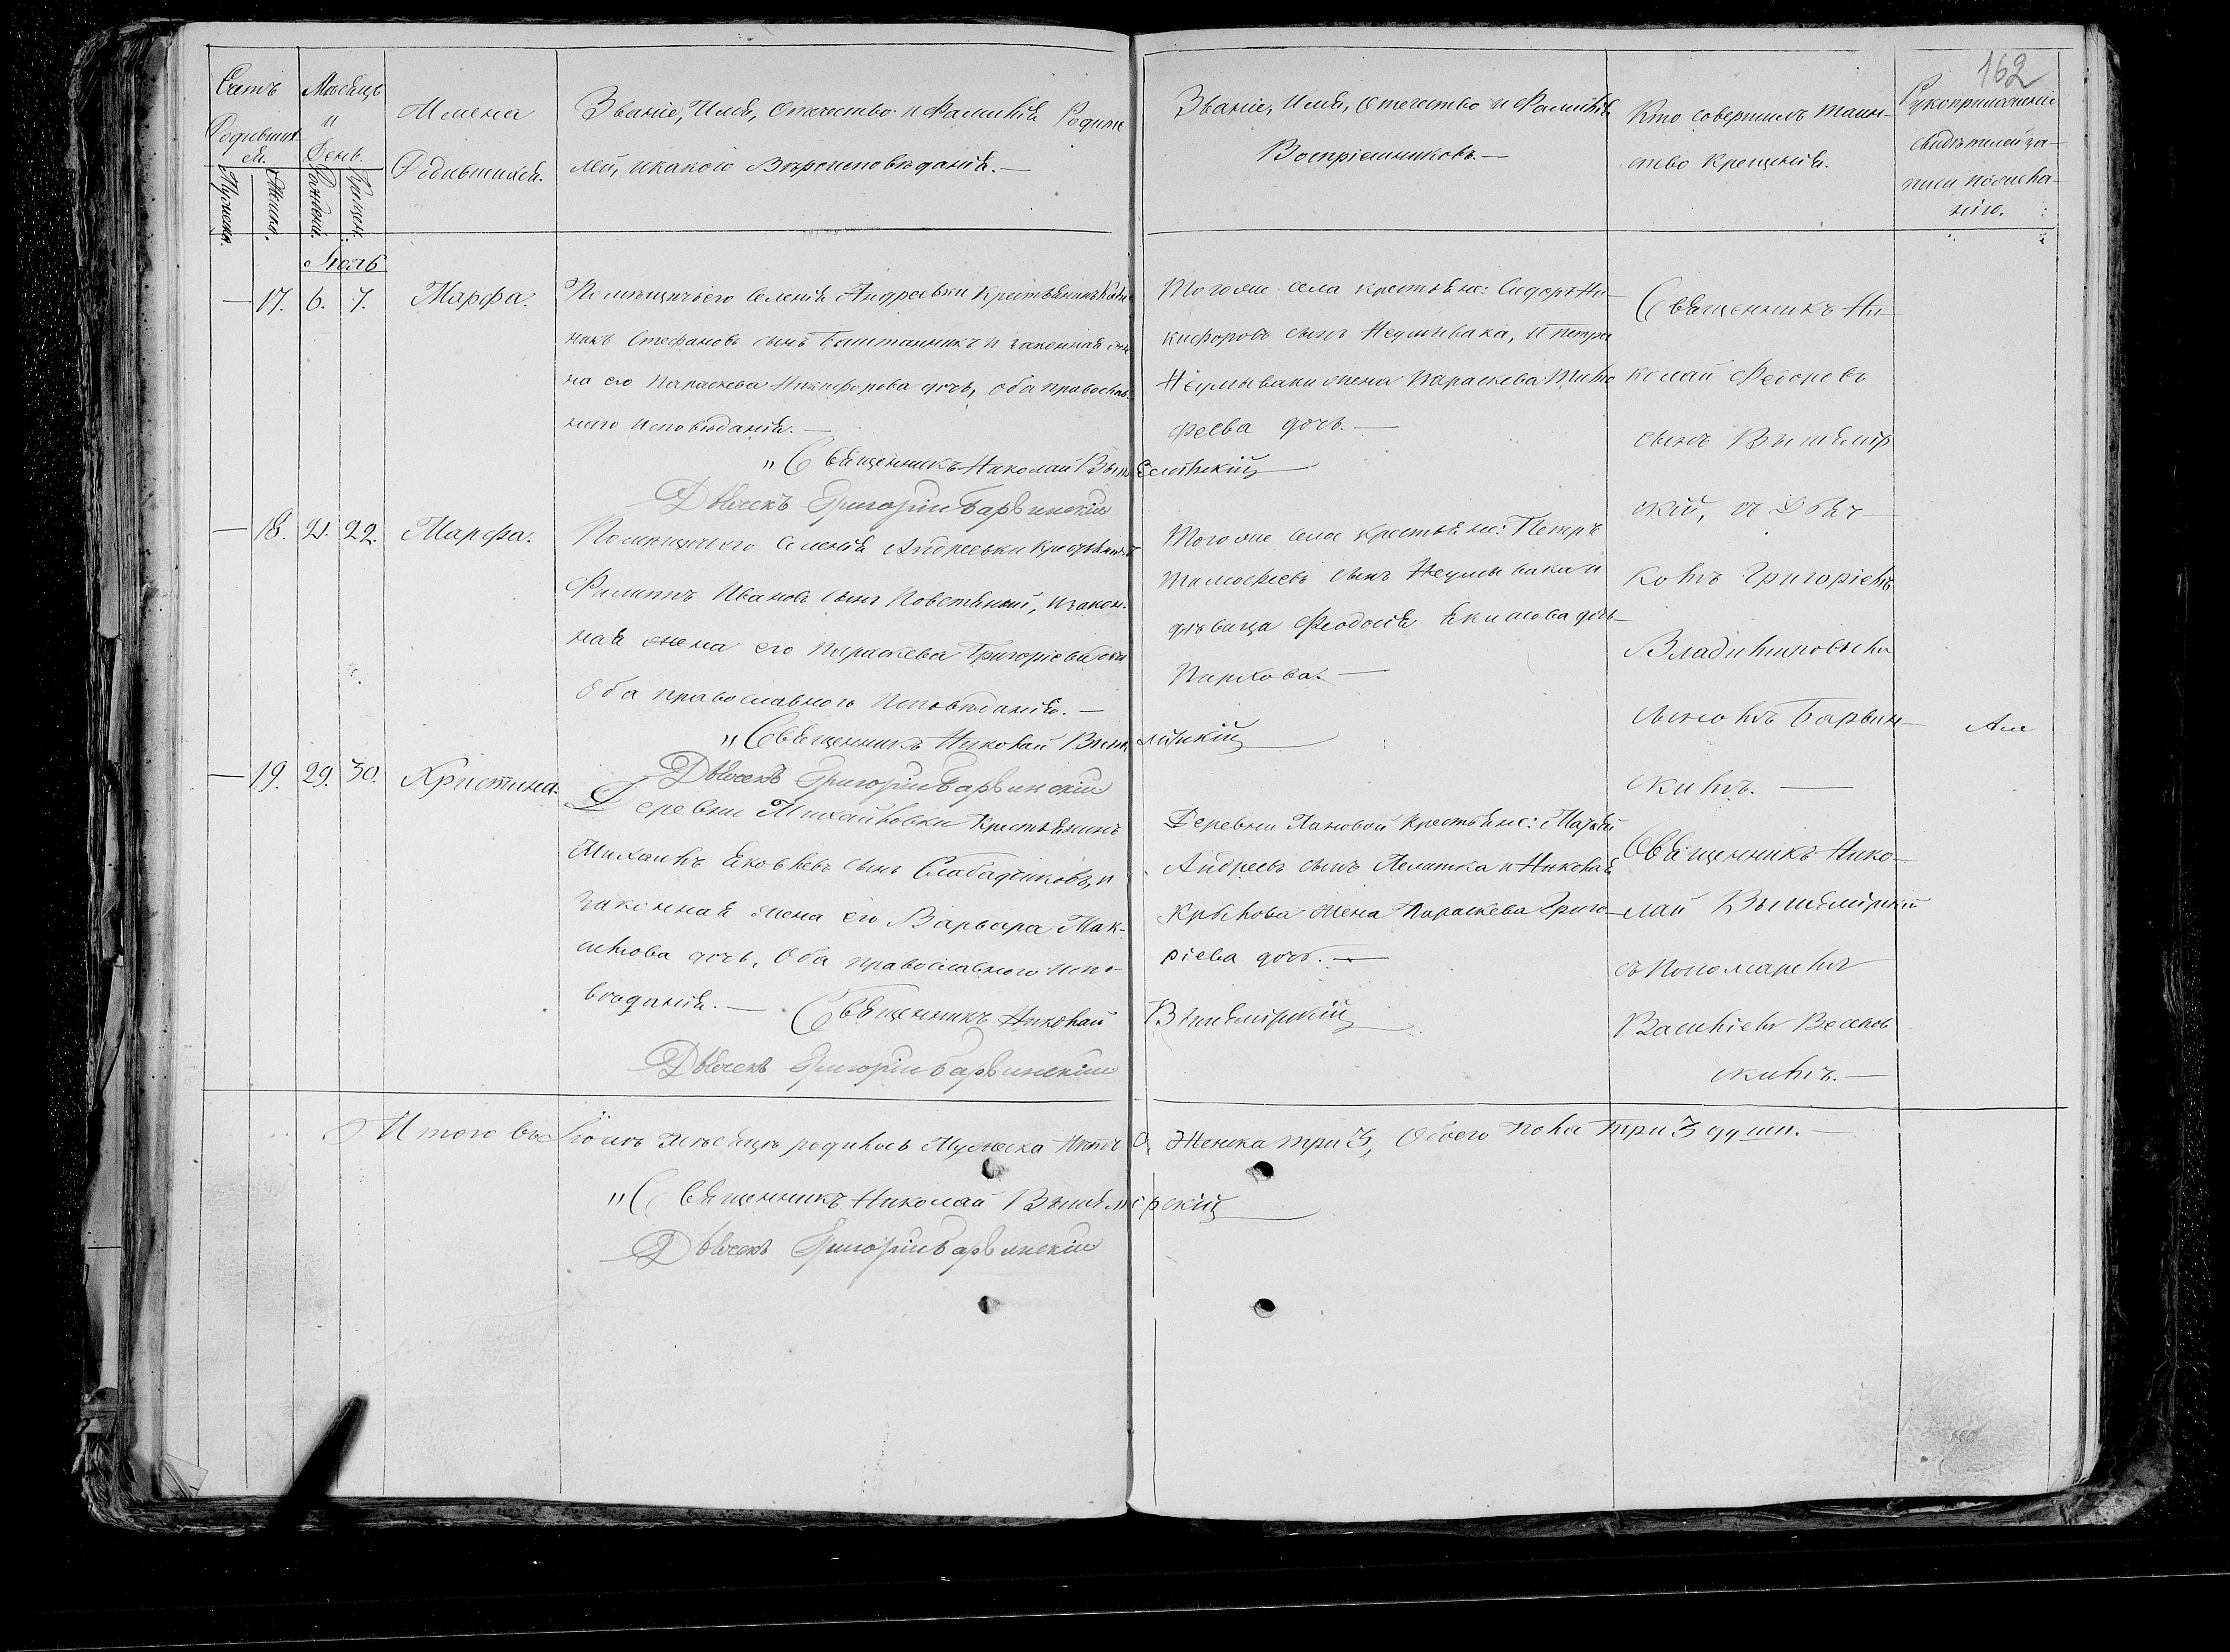 162
Счетъ
Родивших-
ся.
Мужеска.
Женска.
Мѣсяцъ
и
День.
Рожденія.
Крещен.
Имена
Родившихся.
Званіе, Имя, Отчество и Фамилія Родите
лей, и какого Вѣроисповѣданія. —
Званіе, Имя, Отчество и Фамилія
Воспріемниковъ. —
Кто совершилъ таин-
ство крещенія.
Рукоприкладство
свидѣтелей за-
писи по
нію.
Іюль
— 17. 6. 7. Марфа.
Помѣщичьего Селенія Андреевки Крестьянинъ
никъ Стефановъ сынъ Баштанникъ и законная же
на его Параскева Никифорова дочь, оба православ-
ного исповѣданія. —
"Священникъ Николай Вышемірскій
Дьячекъ Григорій Барвинскій
Того же села крестьяне: Сидоръ Ни-
кифоровъ сынъ Неумывака, и Петра
Неумываки жена Параскева Тимо
феева дочь. —
Священникъ Ни-
колай Федоровъ
сынъ Вышемір
скій, съ Дьяч-
комъ Григоріемъ
Владиміровымъ
сыномъ Барвин-
скимъ. —
— 18. 21. 22. Марфа.
Помѣщичьего Селенія Андреевки крестьянинъ
Филиппъ Ивановъ сынъ Повстяный, и закон-
ная жена его Параскева Григоріева дочь
Оба православного исповѣданія. —
"Священникъ Николай Вышемірскій
Дьячекъ Григорій Барвинскій
Того же села крестьяне: Петръ
Тимофеевъ сынъ Неумывака и
дѣвица Феодосія Якимова дочь
Пирхова. —
— 19. 29. 30. Христина.
Деревни Михайловки Крестьянинъ
Михаилъ Яковлевъ сынъ Слабадчиковъ, и
законная жена его Варвара Мак-
симова дочь, Оба православного испо-
вѣданія. — Священникъ Николай Вышемірскій
Дьячекъ Григорій Барвинскій
Деревни Пановой крестьяне:
Андреевъ сынъ Пелашка и Николая
Крылова жена Параскева Григо-
ріева дочь. —
Священникъ Нико-
лай Вышемірскій
съ Пономаремъ
Василіемъ
скимъ. —
Итого въ Іюлѣ мѣсяцѣ родилось Мужеска нѣтъ 0, Женска три 3, Обоего пола три 3 души. —
"Священникъ Николай Вышемірскій
Дьячекъ Григорій Барвинскій